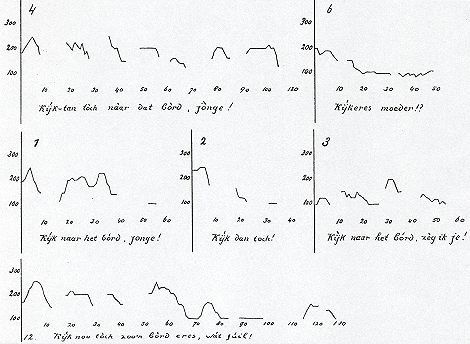 4
300
200
100
10 20 30 40 50 60 70 80 90 100 110 120
Kijk-tan tòch nààr dat bòrd, jònge!
6
300
200
100
10 20 30 40 50 60
Kijkeres moeder!?
1
300
200
100
10 20 30 40 50 60
Kijk naar het bòrd, jonge!
2
300
200
100
10 20 30 40
Kijk dan toch!
3
300
200
100
10 20 30 40 50 60
Kijk naar het bòrd, zèg ik je!
300
200
100
10 20 30 40 50 60 70 80 90 100 110 120 130
12. Kijk nou tòch zoo'n bòrd eres, wàt